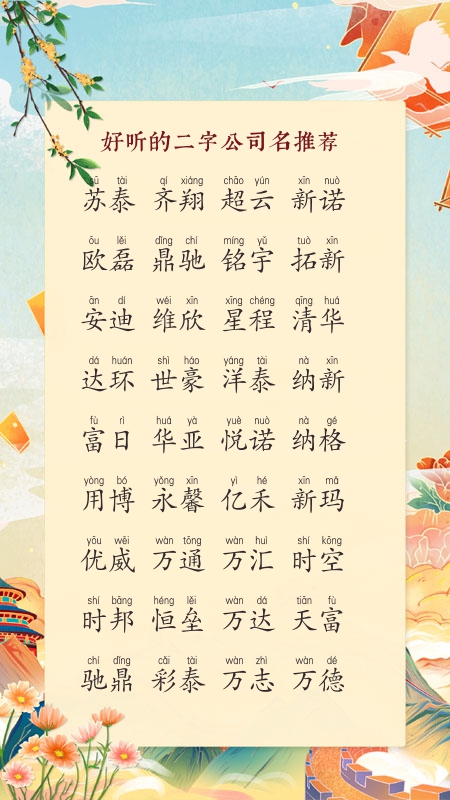 好听的二字公司名推荐
sū tài qí xiáng chāo yún xīn nuò
苏泰 齐翔 超云 新诺
ōu lěi dǐng chí míng yǔ tuò xīn
欧磊 鼎驰 铭宇 拓新
ān dí wéi xīn xīng chéng qīng huá
安迪 维欣 星程 清华
dá huán shì háo yáng tài nà xīn
达环 世豪 洋泰 纳新
fù rì huá yà yuè nuò nà gé
富日 华亚 悦诺 纳格
yòng bó yǒng xīn yì hé xīn mǎ
用博 永馨 亿禾 新玛
yōu wēi wàn tōng wàn huì shí kōng
优威 万通 万汇 时空
shí bāng héng lěi wàn dá tiān fù
时邦 恒垒 万达 天富
chí dǐng cǎi tài wàn zhì wàn dé
驰鼎 彩泰 万志 万德